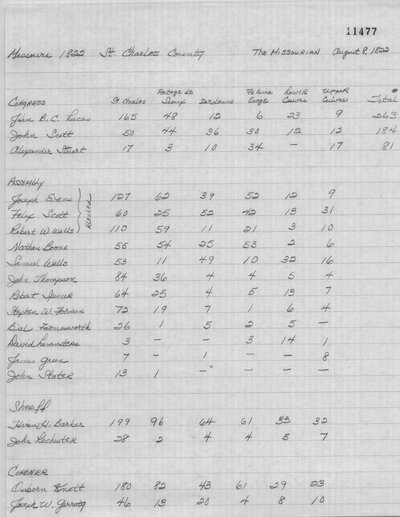 11477
Missouri 1822 St. Charles County The Missourian August 8, 1822
Portage de Femme Lower Upper
Congress St Charles Sioux Dardenne Osage Cuivre Cuivre Total
John B. C. Lucas 165 48 12 6 23 9 263
John Scott 50 44 36 30 12 12 184
Alexander Stuart 17 3 10 34 — 17 81
Assembly
Joseph Evans 127 62 39 52 12 9
Felix Scott 60 25 52 42 13 31
Robert W. Wells 110 59 11 21 3 10
Elected
Nathan Boone 55 54 25 53 2 6
Samuel Wells 53 11 49 10 32 16
John Thompson 84 36 4 4 5 4
Robert Spencer 64 25 4 5 13 7
Stephen W. Forman 72 19 7 1 6 4
Biel Farnsworth 26 1 5 2 5 —
David 3 — — 3 14 1
James Green 7 — 1 — — 8
John Slater 13 1 — — — —
Sheriff
H. Barber 199 96 64 61 33 32
John 28 2 4 4 5 7
Coroner
Osborn Knott 180 82 43 61 29 23
Joseph W. 46 13 20 4 8 10